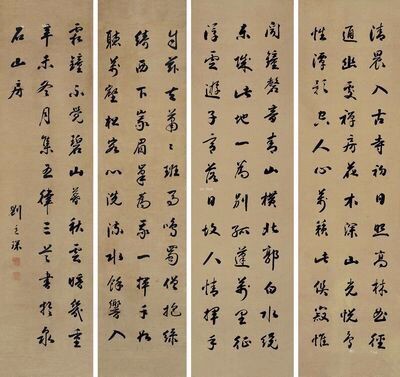 清晨入古寺初日照高林曲徑
通幽處禪房花木深山光悅鳥
性潭影空人心萬籟此俱寂惟
聞鐘磬音青山橫北郭白水繞
東城此地一為別孤蓬萬里征
浮雲遊子意落日故人情揮手
自茲去蕭蕭班馬鳴蜀僧抱綠
綺西下峨眉峯為我一揮手如
聽萬壑松客心洗流水餘響入
霜鐘不覺碧山暮秋雲暗幾重
辛未冬月集五律三首書於泉
石山房
劉之